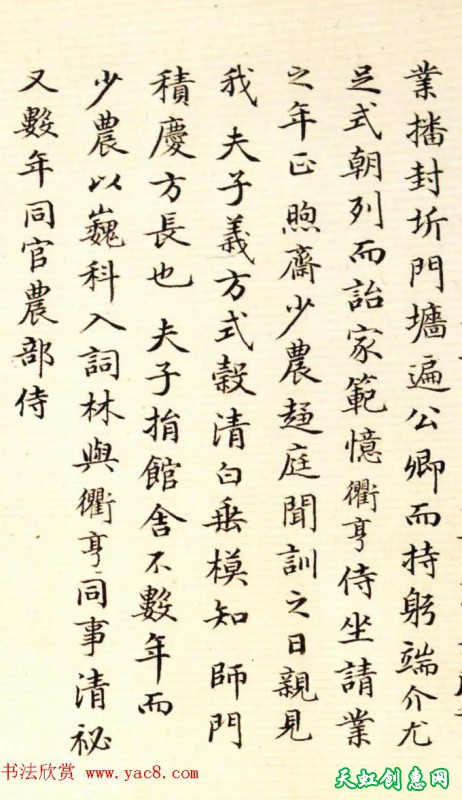 業播封圻門墻遍公卿而持躬端介尤
足式朝列而詒家範憶衢亨侍坐請業
之年正煦齋少農趨庭聞訓之日親見
我 夫子義方式穀清白垂模知 師門
積慶方長也 夫子捐館舍不數年而
少農以巍科入詞林與衢亨同事清祕
又數年同官農部侍
书法欣赏 www.yac8.com
天虹创意网